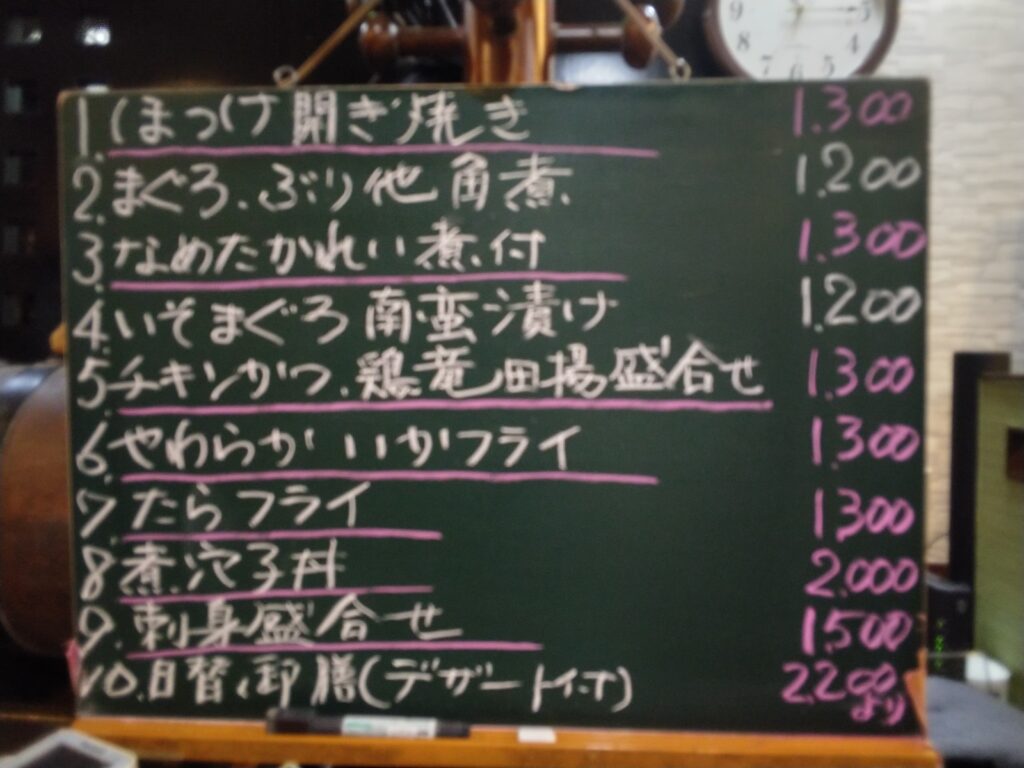 9 3
8 4
7 6 5
1. ほっけ 開き焼き 1.300
2. まぐろ、ぶり他 角煮 1.200
3. なめたかれい 煮付 1.300
4. いそまぐろ 南蛮漬け 1.200
5. チキンかつ、鶏竜田揚盛合せ 1.300
6. やわらか いかフライ 1.300
7. たらフライ 1300
8. 煮穴子丼 2.000
9. 刺身盛合せ 1.500
10. 日替、御膳(デザート付) 2.200より